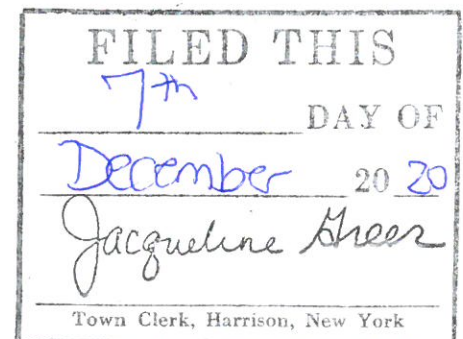 FILED THIS
7th
DAY OF
December 20 20
Jacqueline Greer
Town Clerk, Harrison, New York